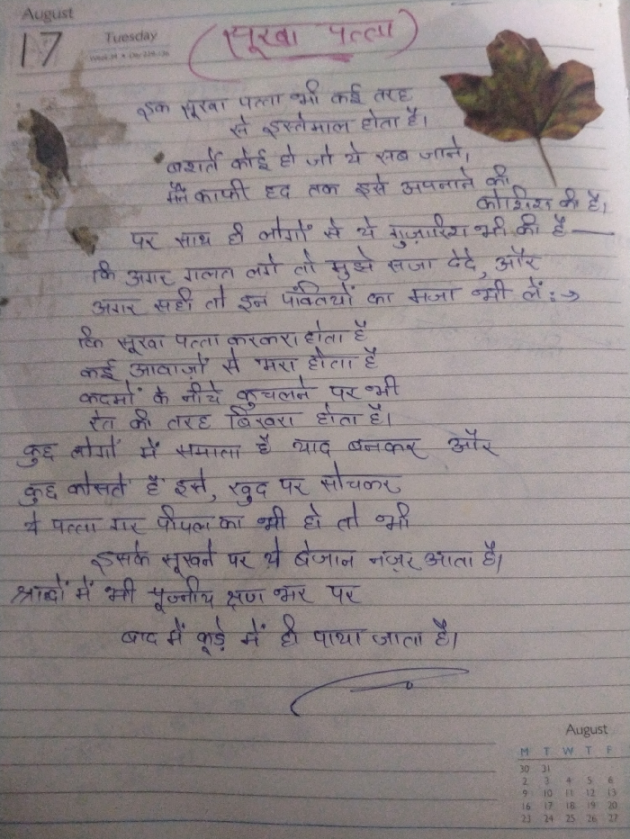 August
17
Tuesday
(सूखा पत्ता)
इक सूखा पत्ता भी कई तरह
से इस्तेमाल होता है।
बशर्ते कोई हो जो ये सब जाने,
मैंने काफी हद तक इसे अपनाने की
कोशिश की है।
पर साथ ही लोगों से ये गुज़ारिश भी की है —
कि अगर गलत लगे तो मुझे सजा दे दें, और
अगर सही तो इन पंक्तियों का मजा भी लें :→
कि सूखा पत्ता करकरा होता है
कई आवाज़ों से भरा होता है
कदमों के नीचे कुचलने पर भी
रेत की तरह बिखरा होता है।
कुछ लोगों में समाता है याद बनकर और
कुछ कोसते हैं इसे, खुद पर सोचकर,
ये पत्ता गर पीपल का भी हो तो भी
इसके सूखने पर ये बेजान नज़र आता है।
श्राद्धों में भी पूज्नीय क्षण भर पर
बाद में कूड़े में ही पाया जाता है।
August
M T W T F
30 31
2 3 4 5 6
9 10 11 12 13
16 17 18 19 20
23 24 25 26 27